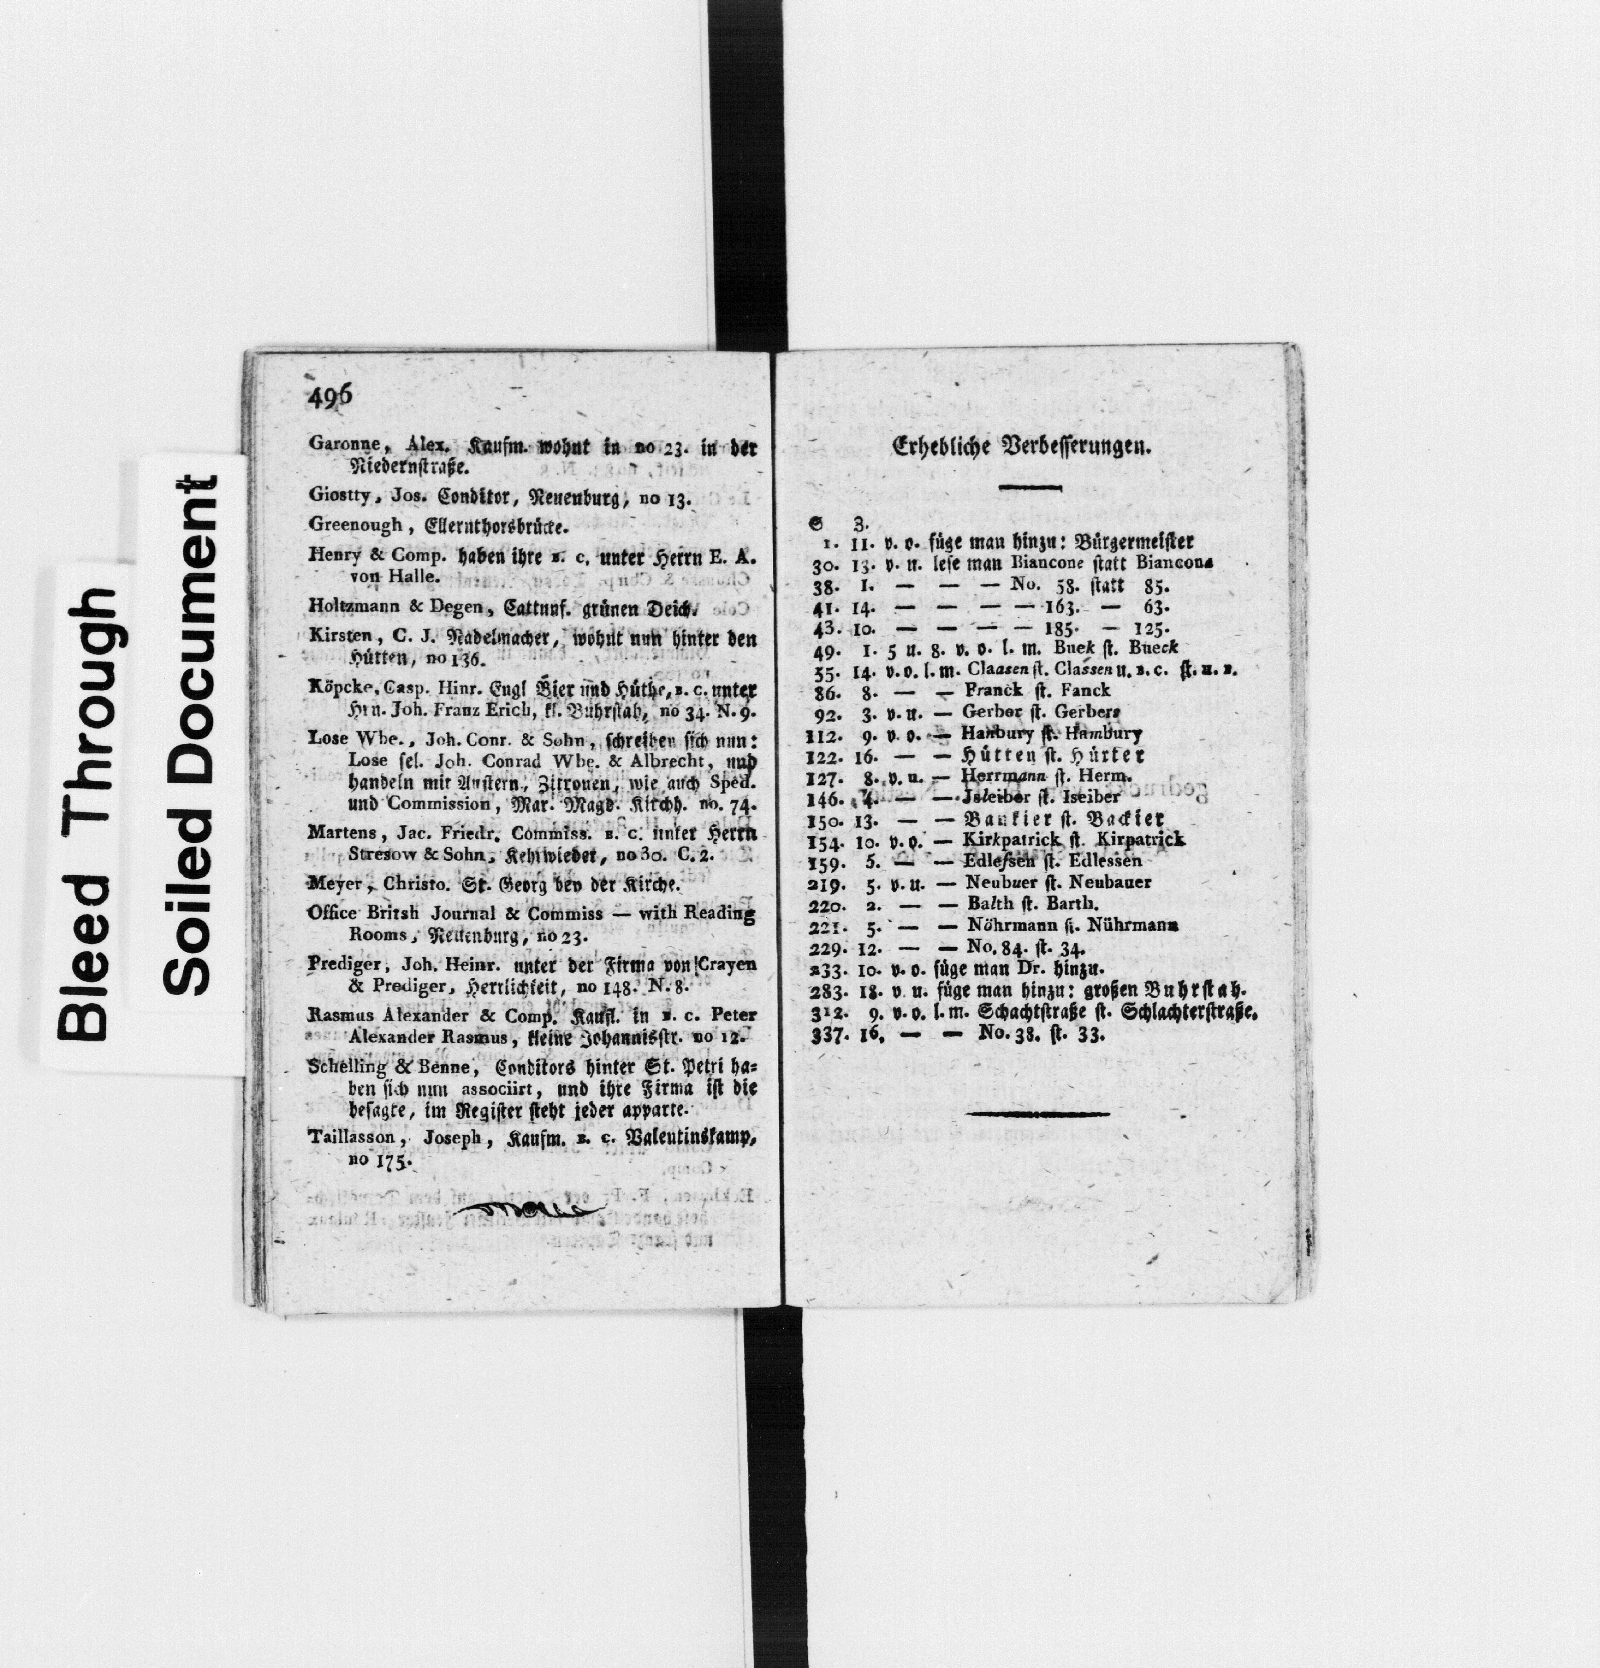 Bleed Through
Soiled Document
496
Garonne, Alex. Kaufm. wohnt in no 23. in der
Niedernstraße.
Giostty, Jos. Conditor, Neuenburg, no 13.
Greenough, Ellernthorsbrücke.
Henry & Comp. haben ihre B. C. unter Herrn E. A.
von Halle.
Holtzmann & Degen, Cattunf. grünen Deich.
Kirsten, C. J. Nadelmacher, wohnt nun hinter den
Hütten, no 136.
Köpcke, Casp. Hinr. Engl Bier und Hüthe, B. C. unter
Hrn. Joh. Franz Erich, kl. Buhrstah, no 34. N. 9.
Lose Wbe., Joh. Conr. & Sohn, schreiben sich nun:
Lose sel. Joh. Conrad Wbe. & Albrecht, und
handeln mit Austern, Zitronen, wie auch Sped.
und Commission, Mar. Magd. Kirchh. no. 74.
Martens, Jac. Friedr. Commiss. B. C. unter Herrn
Stresow & Sohn, Kehrwieder, no 30. C. 2.
Meyer, Christo. St. Georg bey der Kirche.
Office Britsh Journal & Commiss — with Reading
Rooms, Neuenburg, no 23.
Prediger, Joh. Heinr. unter der Firma von Crayen
& Prediger, Herrlichkeit, no 148. N. 8.
Rasmus Alexander & Comp. Kaufl. in B. C. Peter
Alexander Rasmus, kleine Johannisstr. no 12.
Schelling & Benne, Conditors hinter St. Petri ha=
ben sich nun associirt, und ihre Firma ist die
besagte, im Register steht jeder apparte.
Taillasson, Joseph, Kaufm. B. C. Valentinskamp,
no 175.
Erhebliche Verbesserungen.
S 3.
1. 11. v. o. füge man hinzu: Bürgermeister
30. 13. v. u. lese man Biancone statt Biancons
38. 1. — — — No. 58. statt 85.
41. 14. — — — — 163. — 63.
43. 10. — — — — 185. — 125.
49. 1. 5 u. 8. v. o. l. m. Buek st. Bueck
55. 14. v. o. l. m. Claasen st. Classen u. B. C. st. H. B.
86. 8. — — Franck st. Fanck
92. 3. v. u. — Gerber st. Gerbers
112. 9. v. o. — Hanbury st. Hambury
122. 16. — — Hütten st. Hürter
127. 8. v. u. — Herrmann st. Herm.
146. 4. — — Jsleiber st. Iseiber
150. 13. — — Bankier st. Backier
154. 10. v. o. — Kirkpatrick st. Kirpatrick
159. 5. — — Edlefsen st. Edlessen
219. 5. v. u. — Neubuer st. Neubauer
220. 2. — — Balth st. Barth.
221. 5. — — Nöhrmann st. Nührmann
229. 12. — — No. 84. st. 34.
233. 10. v. o. füge man Dr. hinzu.
283. 18. v. u. füge man hinzu: großen Buhrstah.
312. 9. v. o. l. m. Schachtstraße st. Schlachterstraße.
337. 16. — — No. 38. st. 33.